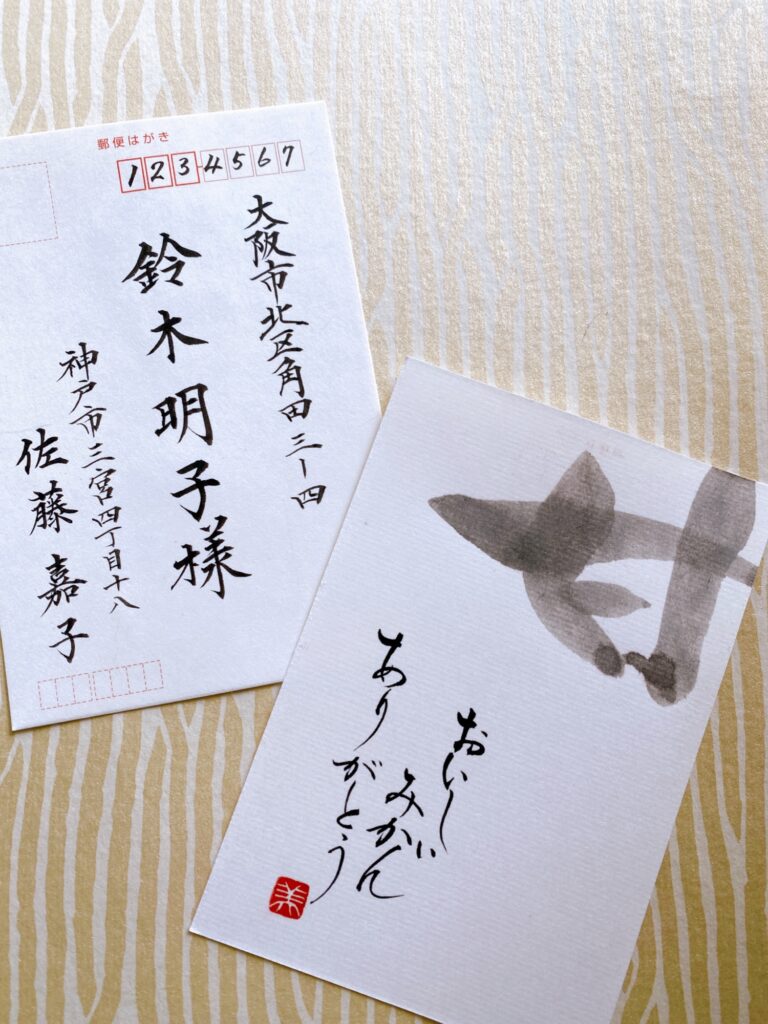 郵便はがき
1234567
大阪市北区角田三-四
鈴木明子様
神戸市三宮四丁目十八
佐藤嘉子
甘
おいしい
みかん
ありがとう
美